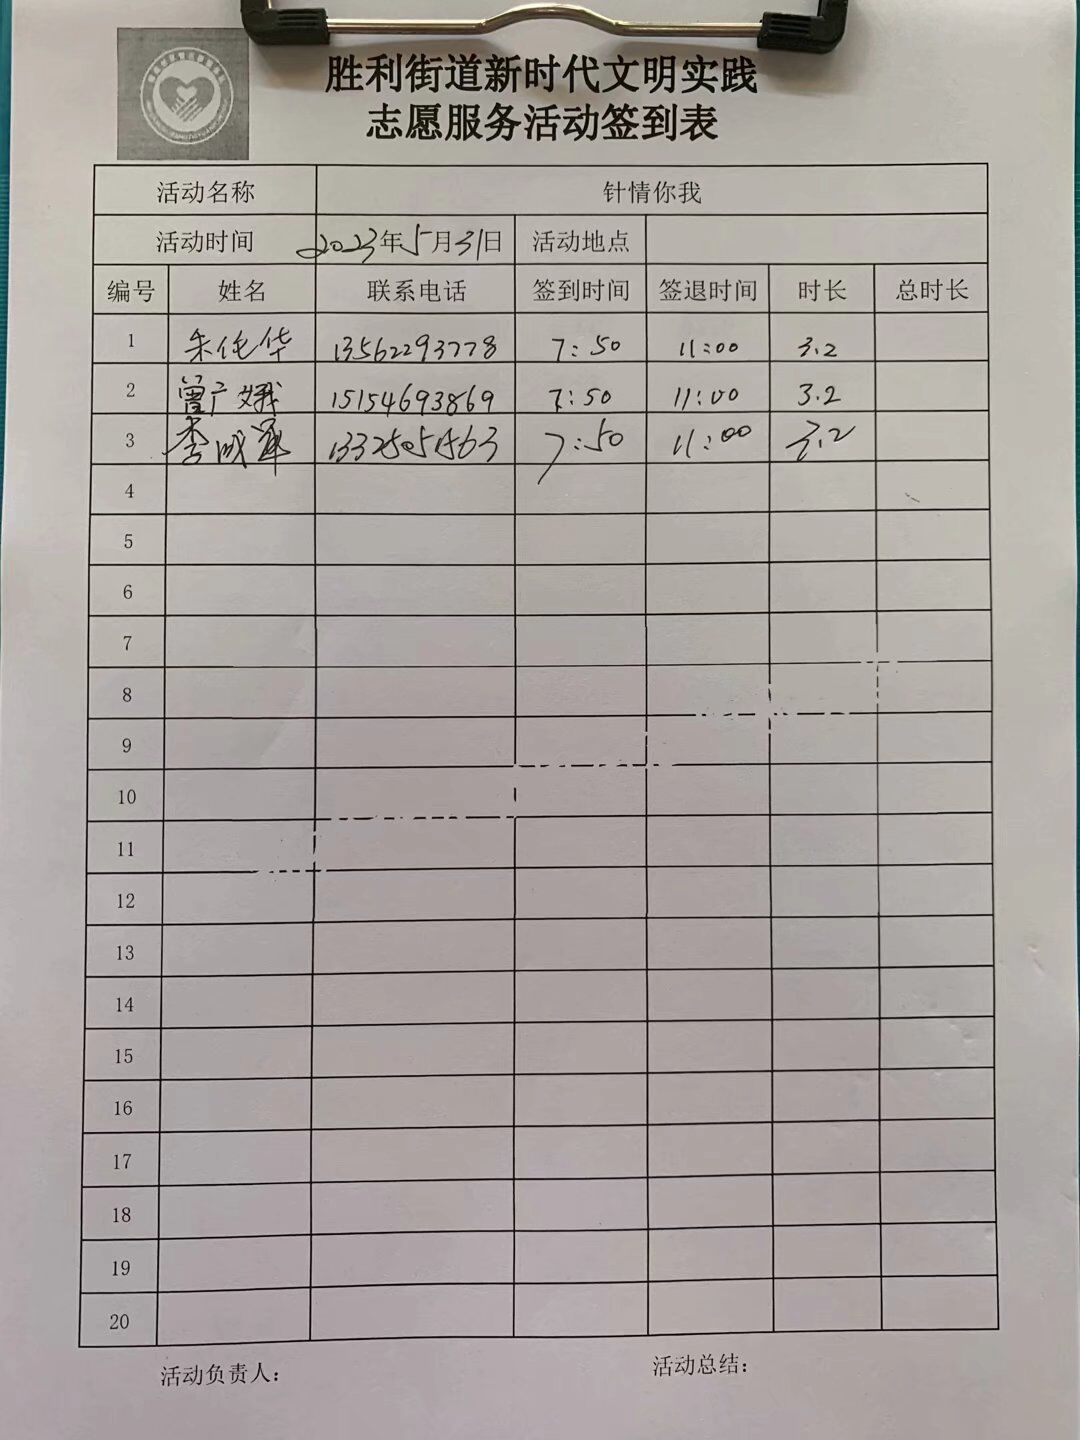 胜利街道新时代文明实践
志愿服务活动签到表
活动名称 针情你我
活动时间 2023年5月31日 活动地点
编号 姓名 联系电话 签到时间 签退时间 时长 总时长
1 朱传华 13562293778 7:50 11:00 3.2
2 曾广娥 15154693869 7:50 11:00 3.2
3 李成 7:50 11:00 3.2
4
5
6
7
8
9
10
11
12
13
14
15
16
17
18
19
20
活动负责人: 活动总结: